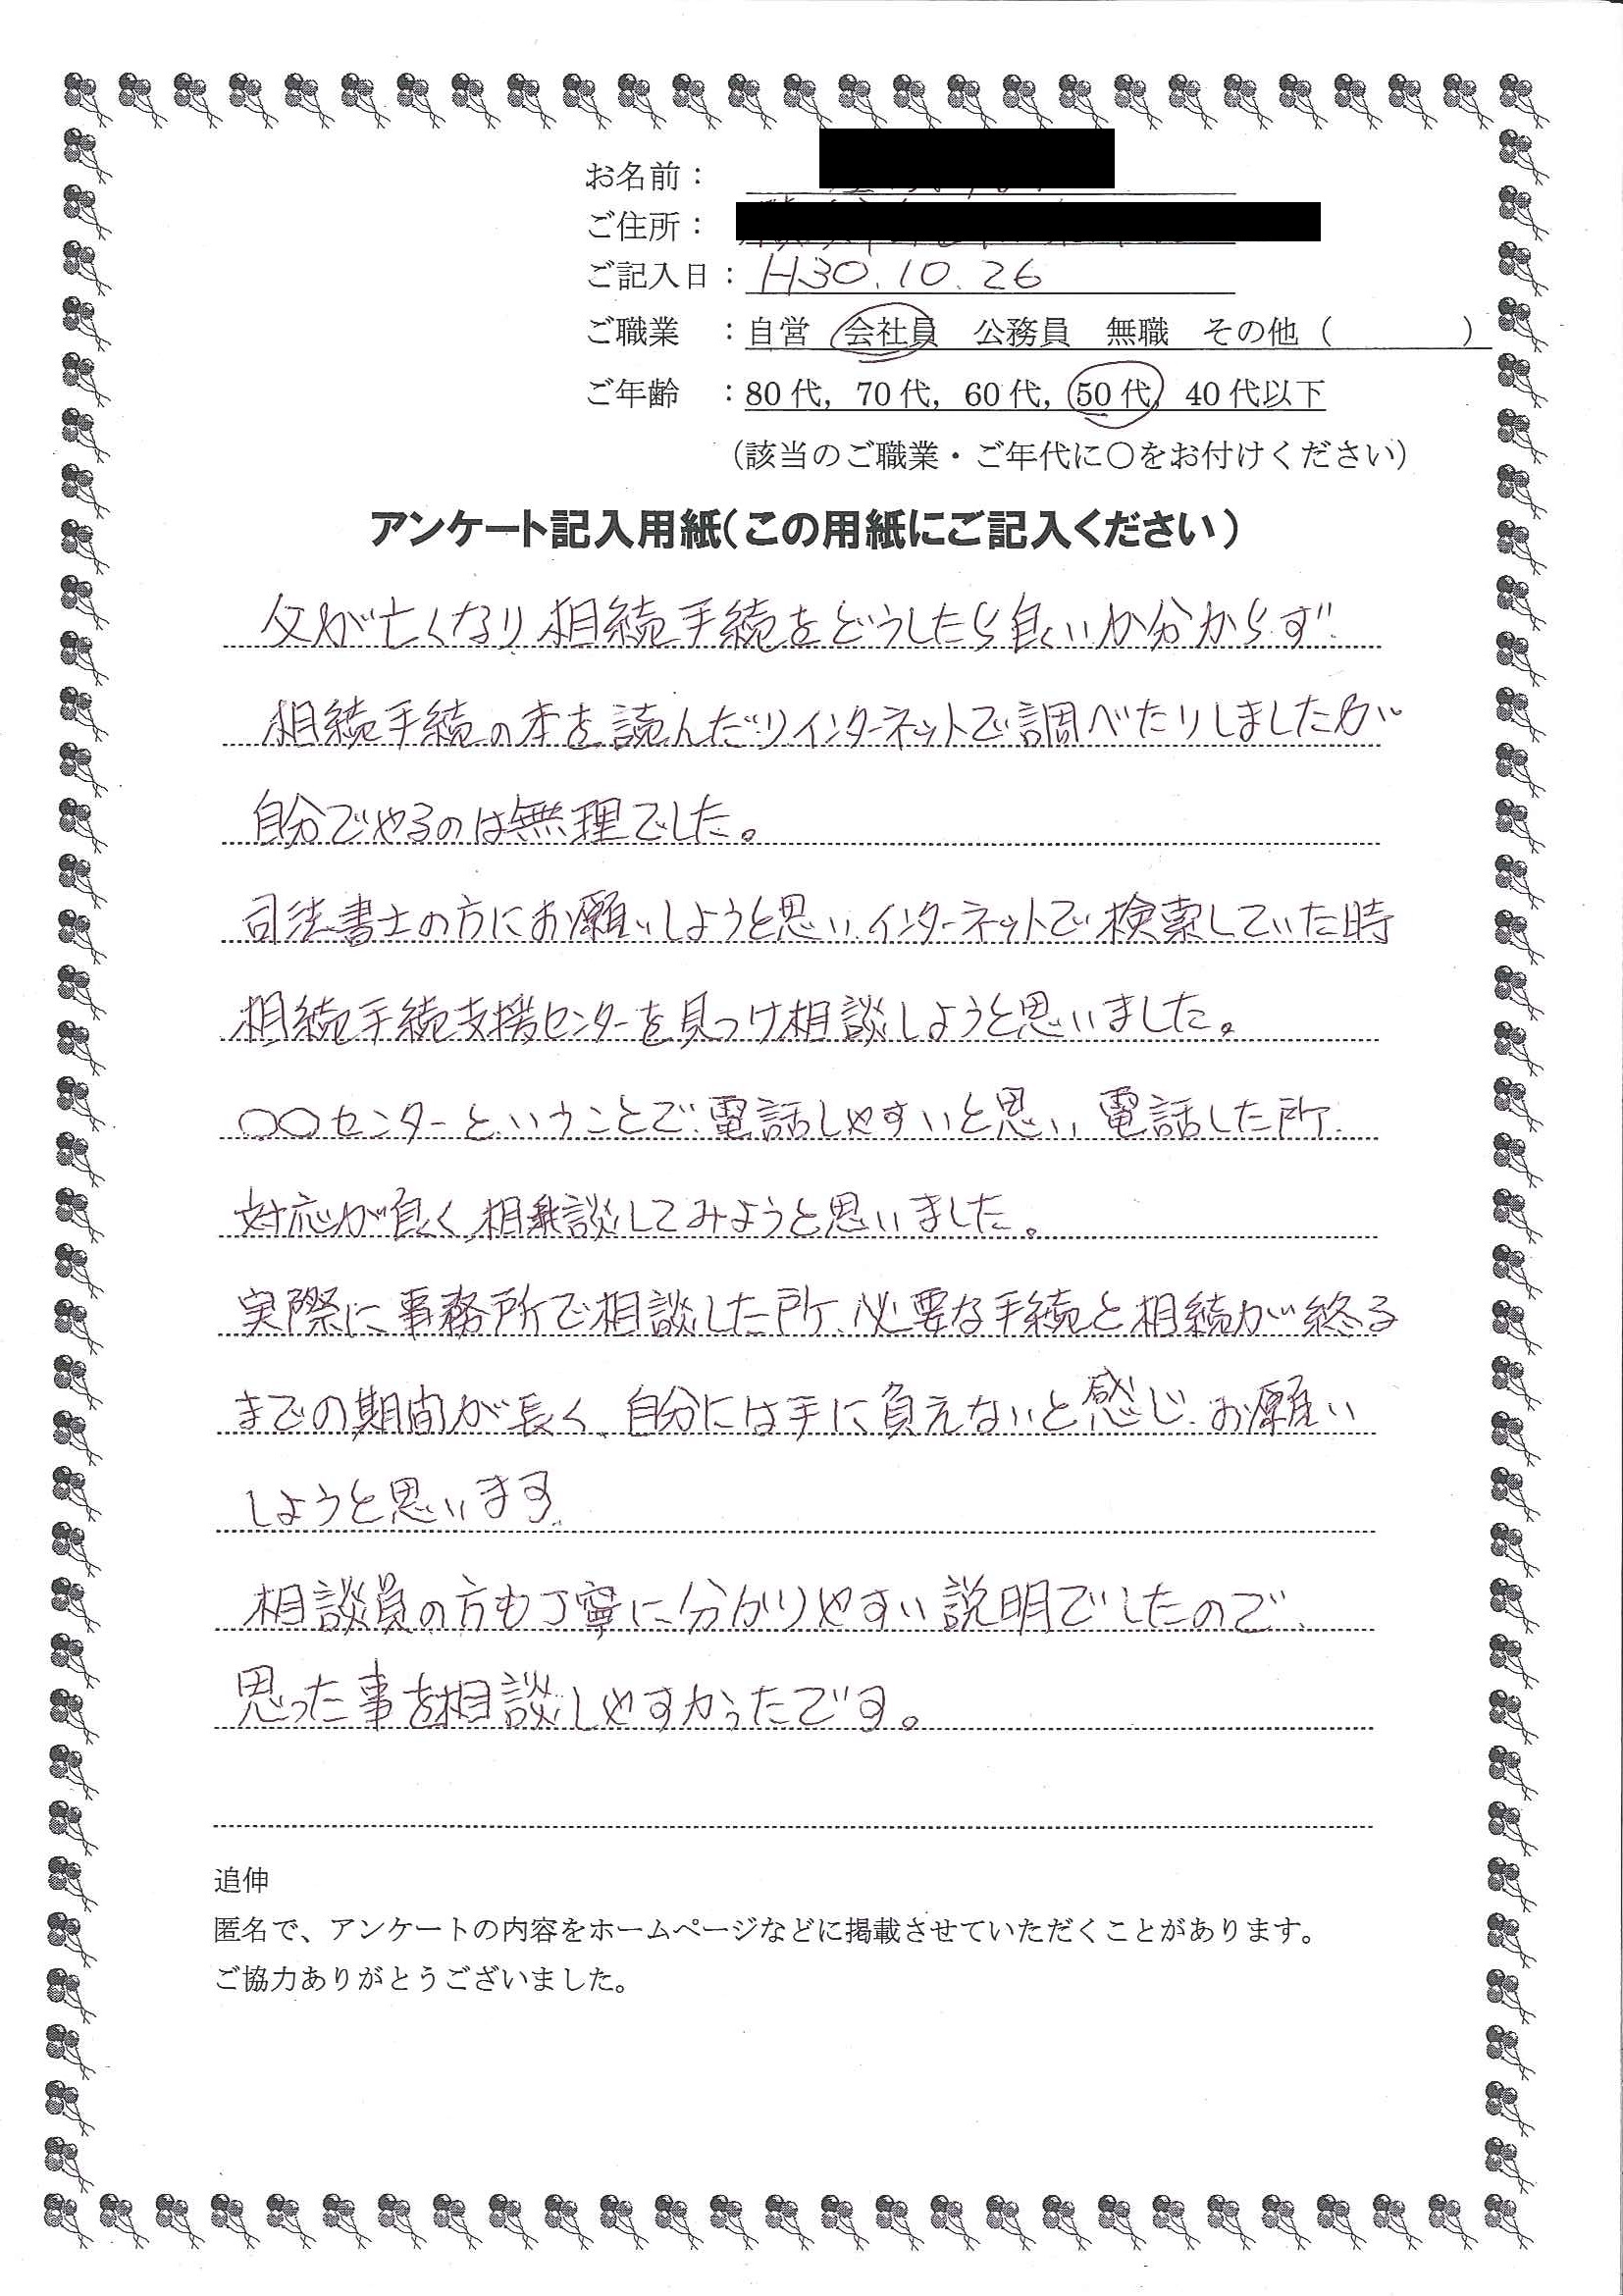 お名前：
ご住所：
ご記入日：H30.10.26
ご職業　：自営　会社員　公務員　無職　その他（　　　　）
ご年齢　：80代，70代，60代，50代，40代以下
（該当のご職業・ご年代に〇をお付けください）
アンケート記入用紙（この用紙にご記入ください）
父が亡くなり相続手続をどうしたら良いか分からず
相続手続の本を読んだりインターネットで調べたりしましたが
自分でやるのは無理でした。
司法書士の方にお願いしようと思いインターネットで検索していた時
相続手続支援センターを見つけ相談しようと思いました。
〇〇センターということで電話しやすいと思い、電話した所、
対応が良く、相談してみようと思いました。
実際に事務所で相談した所、必要な手続と相続が終る
までの期間が長く、自分には手に負えないと感じ、お願い
しようと思います。
相談員の方も丁寧に分かりやすい説明でしたので、
思った事を相談しやすかったです。
追伸
匿名で、アンケートの内容をホームページなどに掲載させていただくことがあります。
ご協力ありがとうございました。